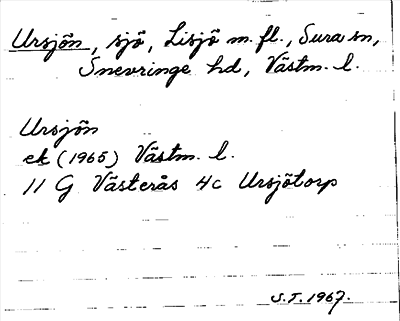 Ursjön, sjö, Lisjö m. fl., Sura sn,
Snevringe hd, Västm. l.
Ursjön
ek (1965) Västm. l.
11 G Västerås 4c Ursjötorp
S.T. 1967.